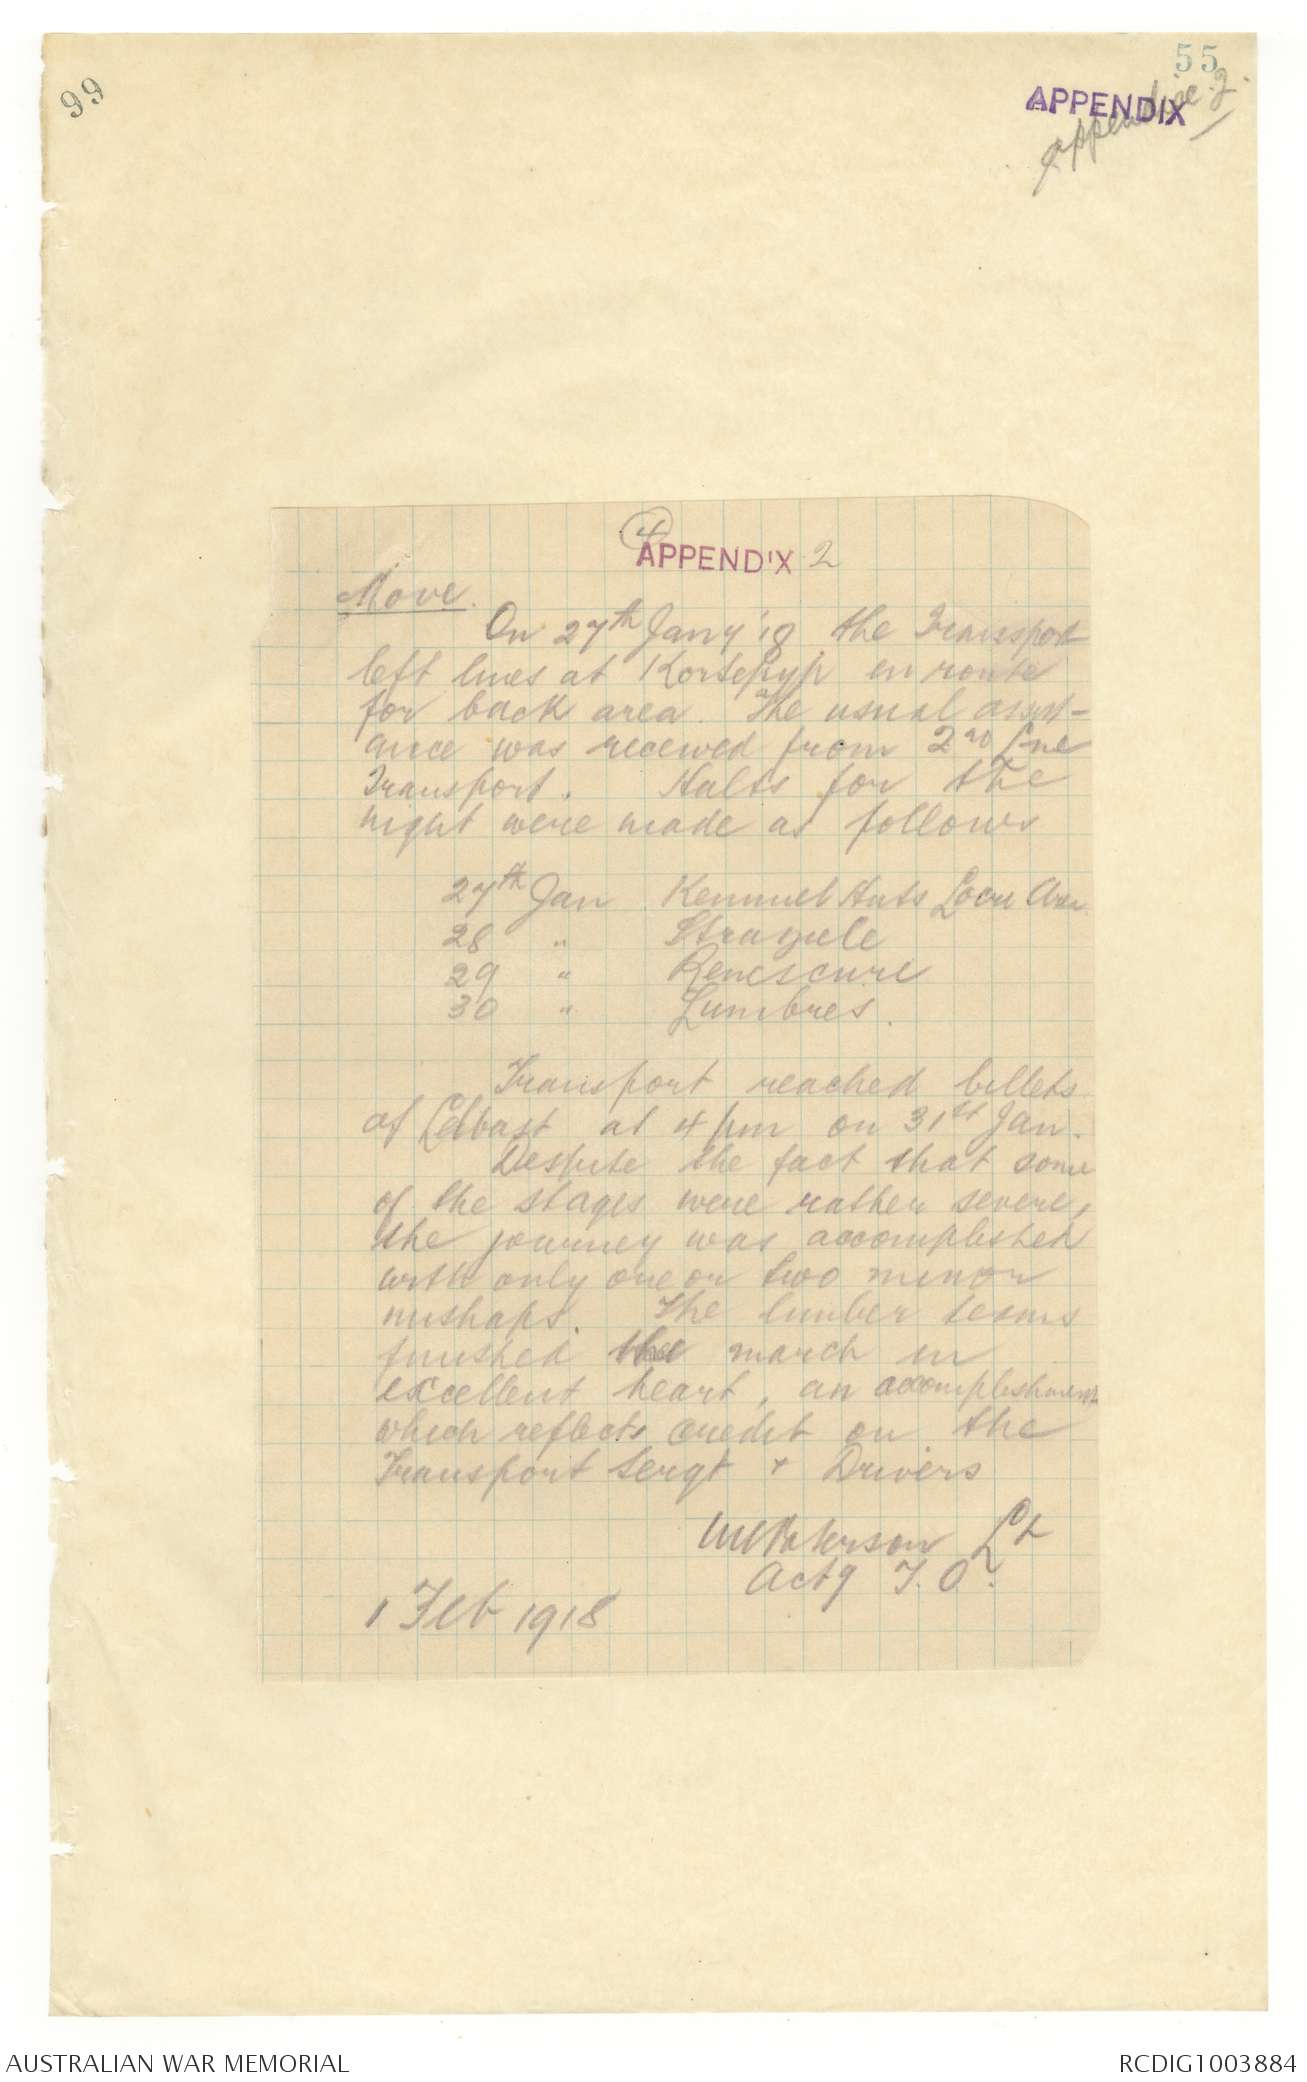 55
99
APPENDIX
appendix 2.
4
APPENDIX 2
Move.
On 27th Jany '18 the Transport
left lines at Kortepyp en route
for back area. The usual assist-
ance was received from 2nd Line
Transport. Halts for the
night were made as follows
27th Jan Kemmel Huts Locre Area
28 " Strazeele
29 " Renescure
30 " Lumbres.
Transport reached billets
at 4 pm on 31st Jan.
Despite the fact that some
of the stages were rather severe,
the journey was accomplished
with only one or two minor
mishaps. The limber teams
finished the march in
excellent heart, an accomplishment
which reflects credit on the
Transport Sergt & Drivers
Paterson Lt
Actg T.O.
1 Feb 1918
AUSTRALIAN WAR MEMORIAL
RCDIG1003884